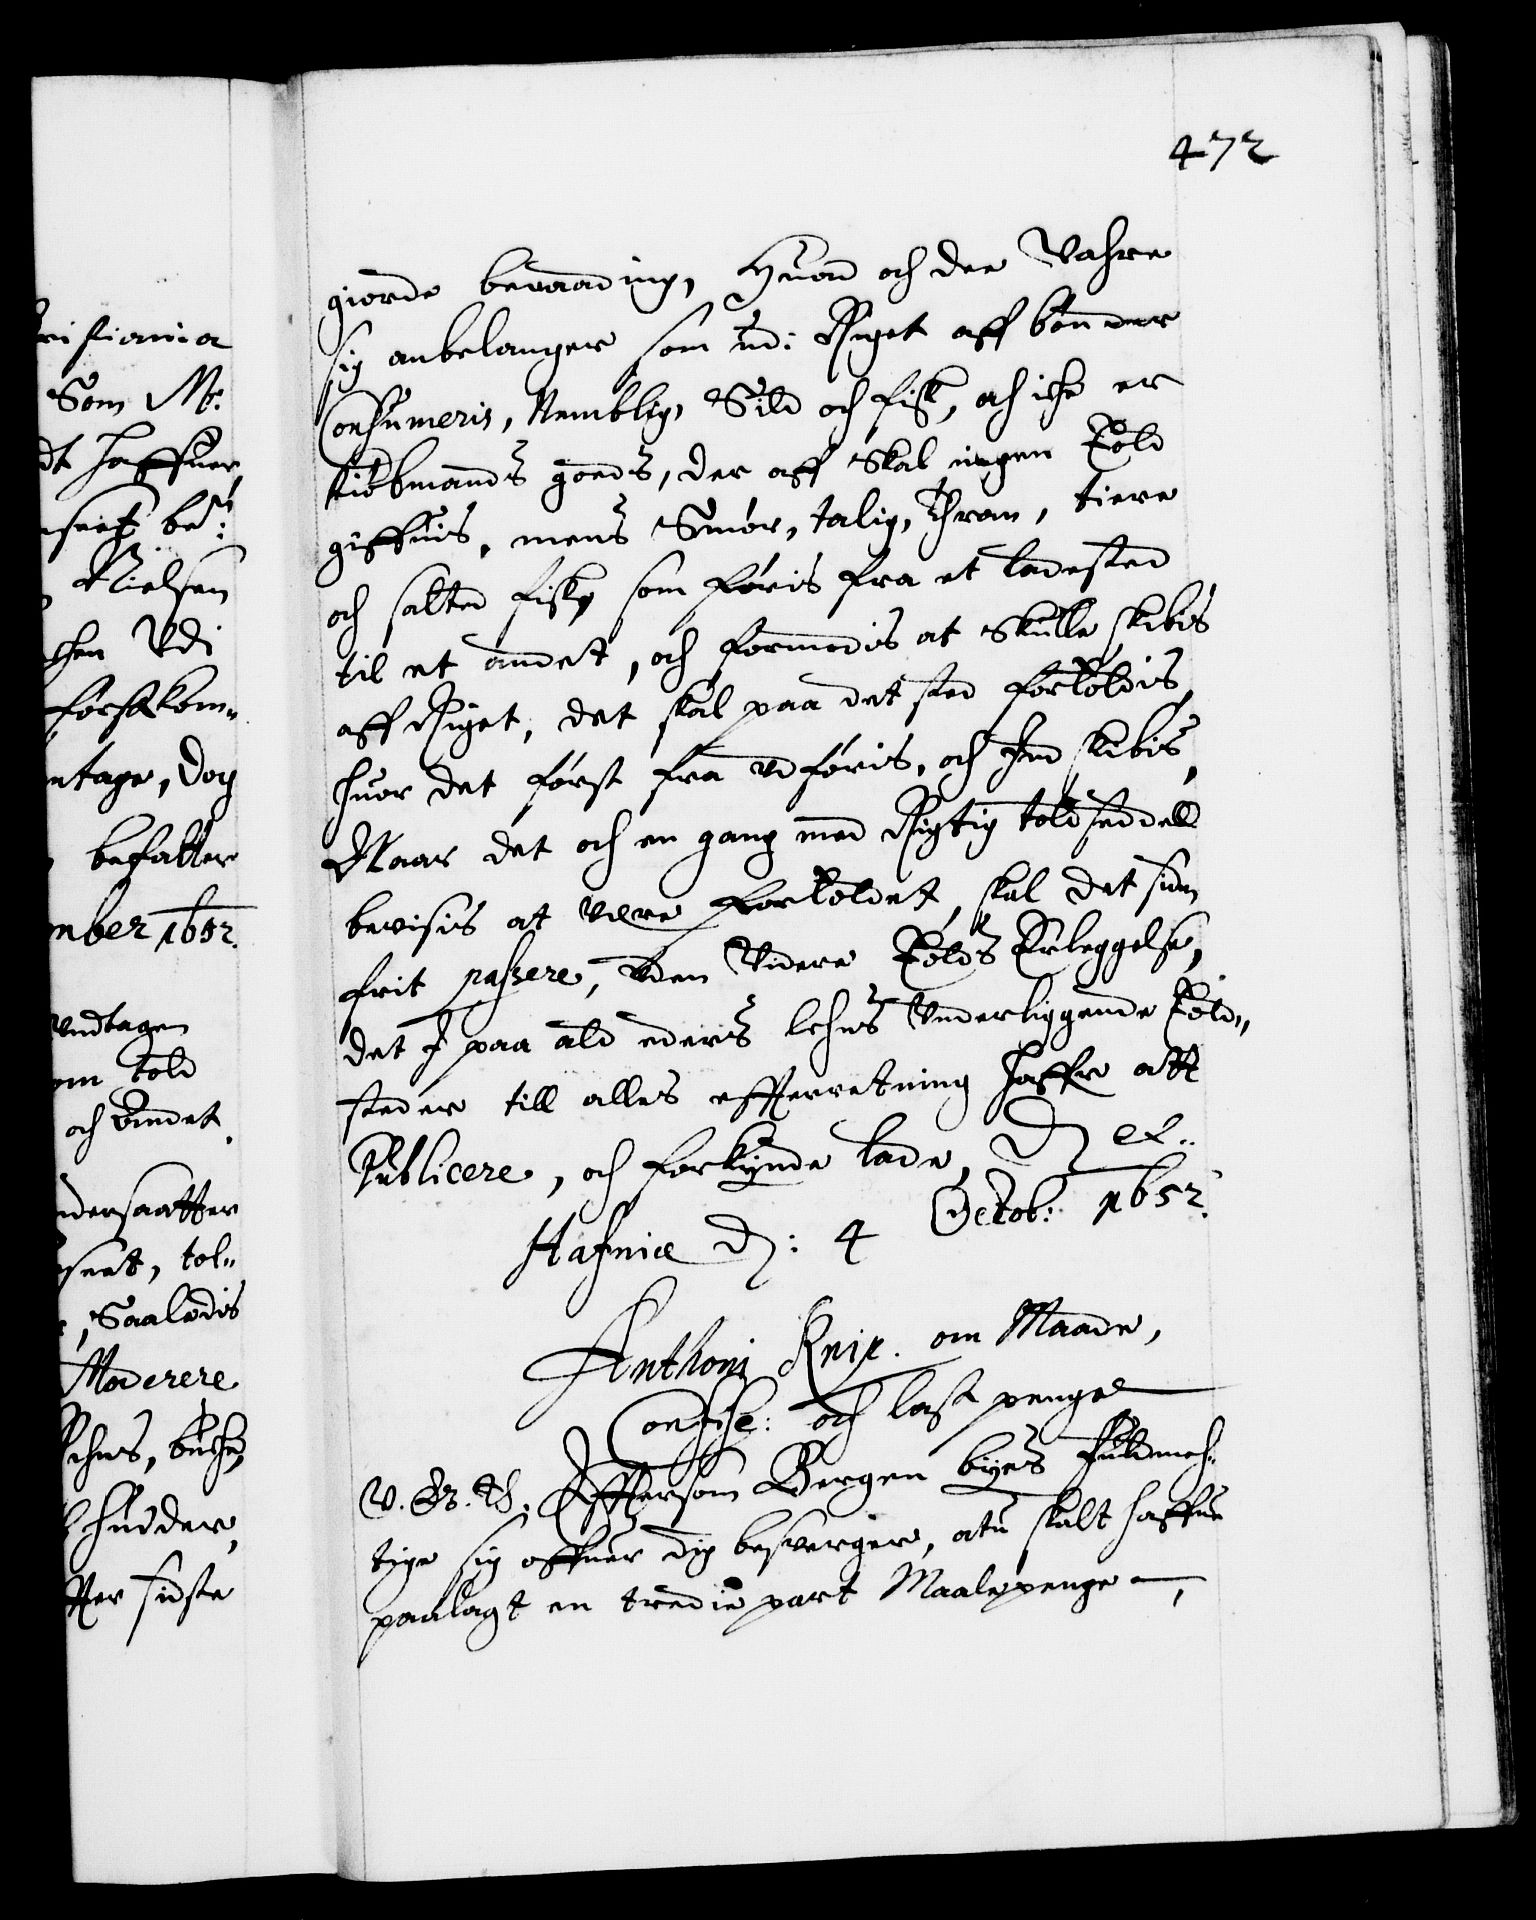 472
giorde bevaading, Huad och dee Vahre
sig anbelanger som udi Riget aff bønder
Consumeris, Nemblig, Sild och fisk, och iche er
kiøbmands goeds, der aff skal ingen Told
giffuis, mens Smør, talig, Thran, tiere
och salted fisk, som føris fra et ladested
til et andet, och formodis at skulle skibis
aff Riget, det skal paa det sted fortoldis
huor det først fra udføris, och Ind skibis,
Naar det och en gang med Rigtig toldseddell
bevisis at vere fortoldet, skal det siden
frit passere, uden videre Tolds Erleggelse,
det I paa ald eders lehns underliggende Told„
steder till alles effterretning haffr att
Publicere, och forkynde lade, D et..
Hafniæ D: 4 Octob: 1652.
Anthoni Knip. om Maade,
Consise: och last penge
V. G. T. Effersom Bergen byes fuldmeh„
tige sig offuer dig besverger, atu skalt haffue
paalagt en tredie part Maalepenge,
ristiania
Som M:
dt haffuer
Nielsen
chen Vdi
førstkom„
ntage, dog
befatter
mber 1652.
undtagen
om told
och Andet
ndersaatter
tol„
, Saaledis
Moderere
huder,
ter sidste